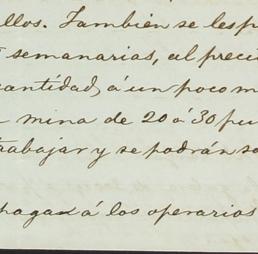 llos. También se les p
semanarias, al preci
cantidad, á un poco m
mina de 20 á 30 pu
trabajar y se podrán sa
pagax á los operarios